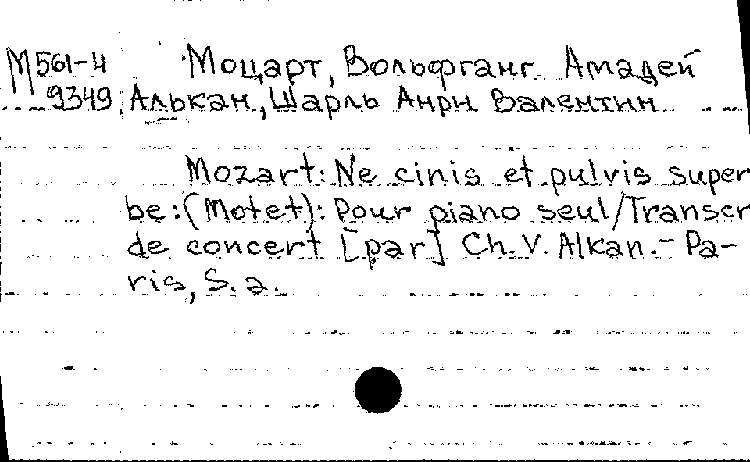 М 561-4 Моцарт, Вольфганг Амадей
9349 Алькан, Шарль Анри Валентин
Mozart: Ne cinis et pulvis super
be: (Motet): Pour piano seul/Transcr
de concert [par] Ch. V. Alkan. – Pa-
ris, S. a.